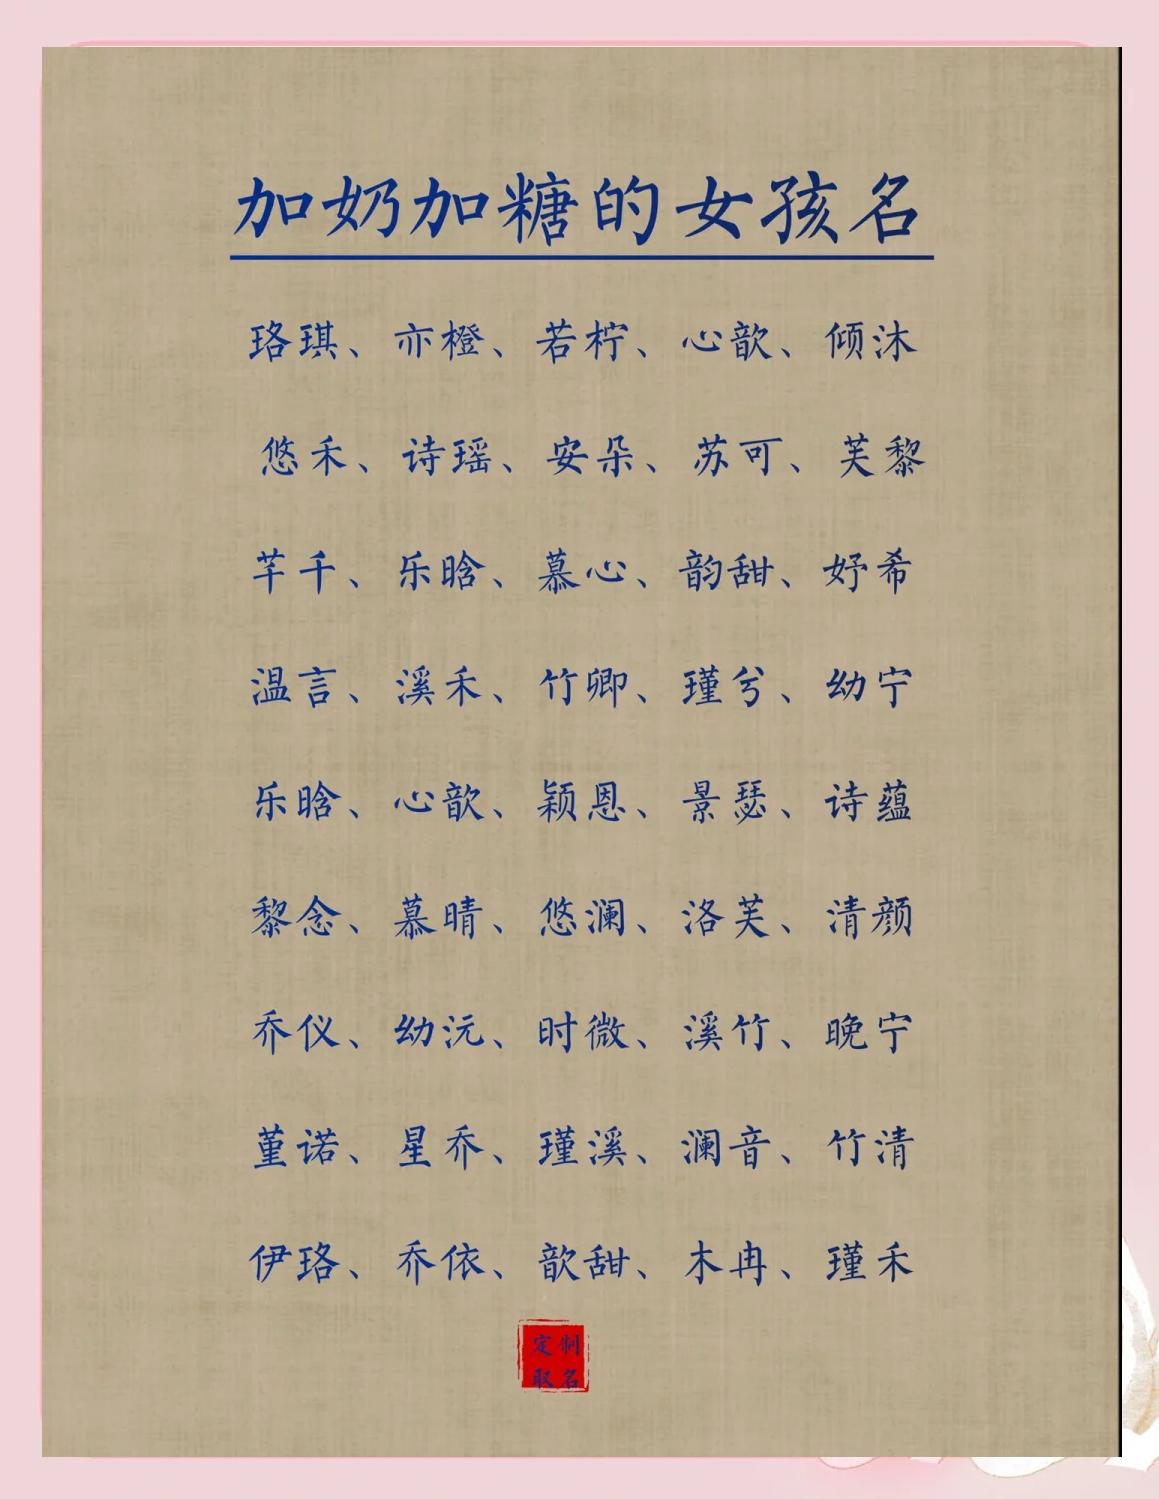 加奶加糖的女孩名
珞琪、亦橙、若柠、心歆、倾沐
悠禾、诗瑶、安朵、苏可、芙黎
芊千、乐晗、慕心、韵甜、妤希
温言、溪禾、竹卿、瑾兮、幼宁
乐晗、心歆、颖恩、景瑟、诗蕴
黎念、慕晴、悠澜、洛芙、清颜
乔仪、幼沅、时微、溪竹、晚宁
堇诺、星乔、瑾溪、澜音、竹清
伊珞、乔依、歆甜、木冉、瑾禾
定制
取名